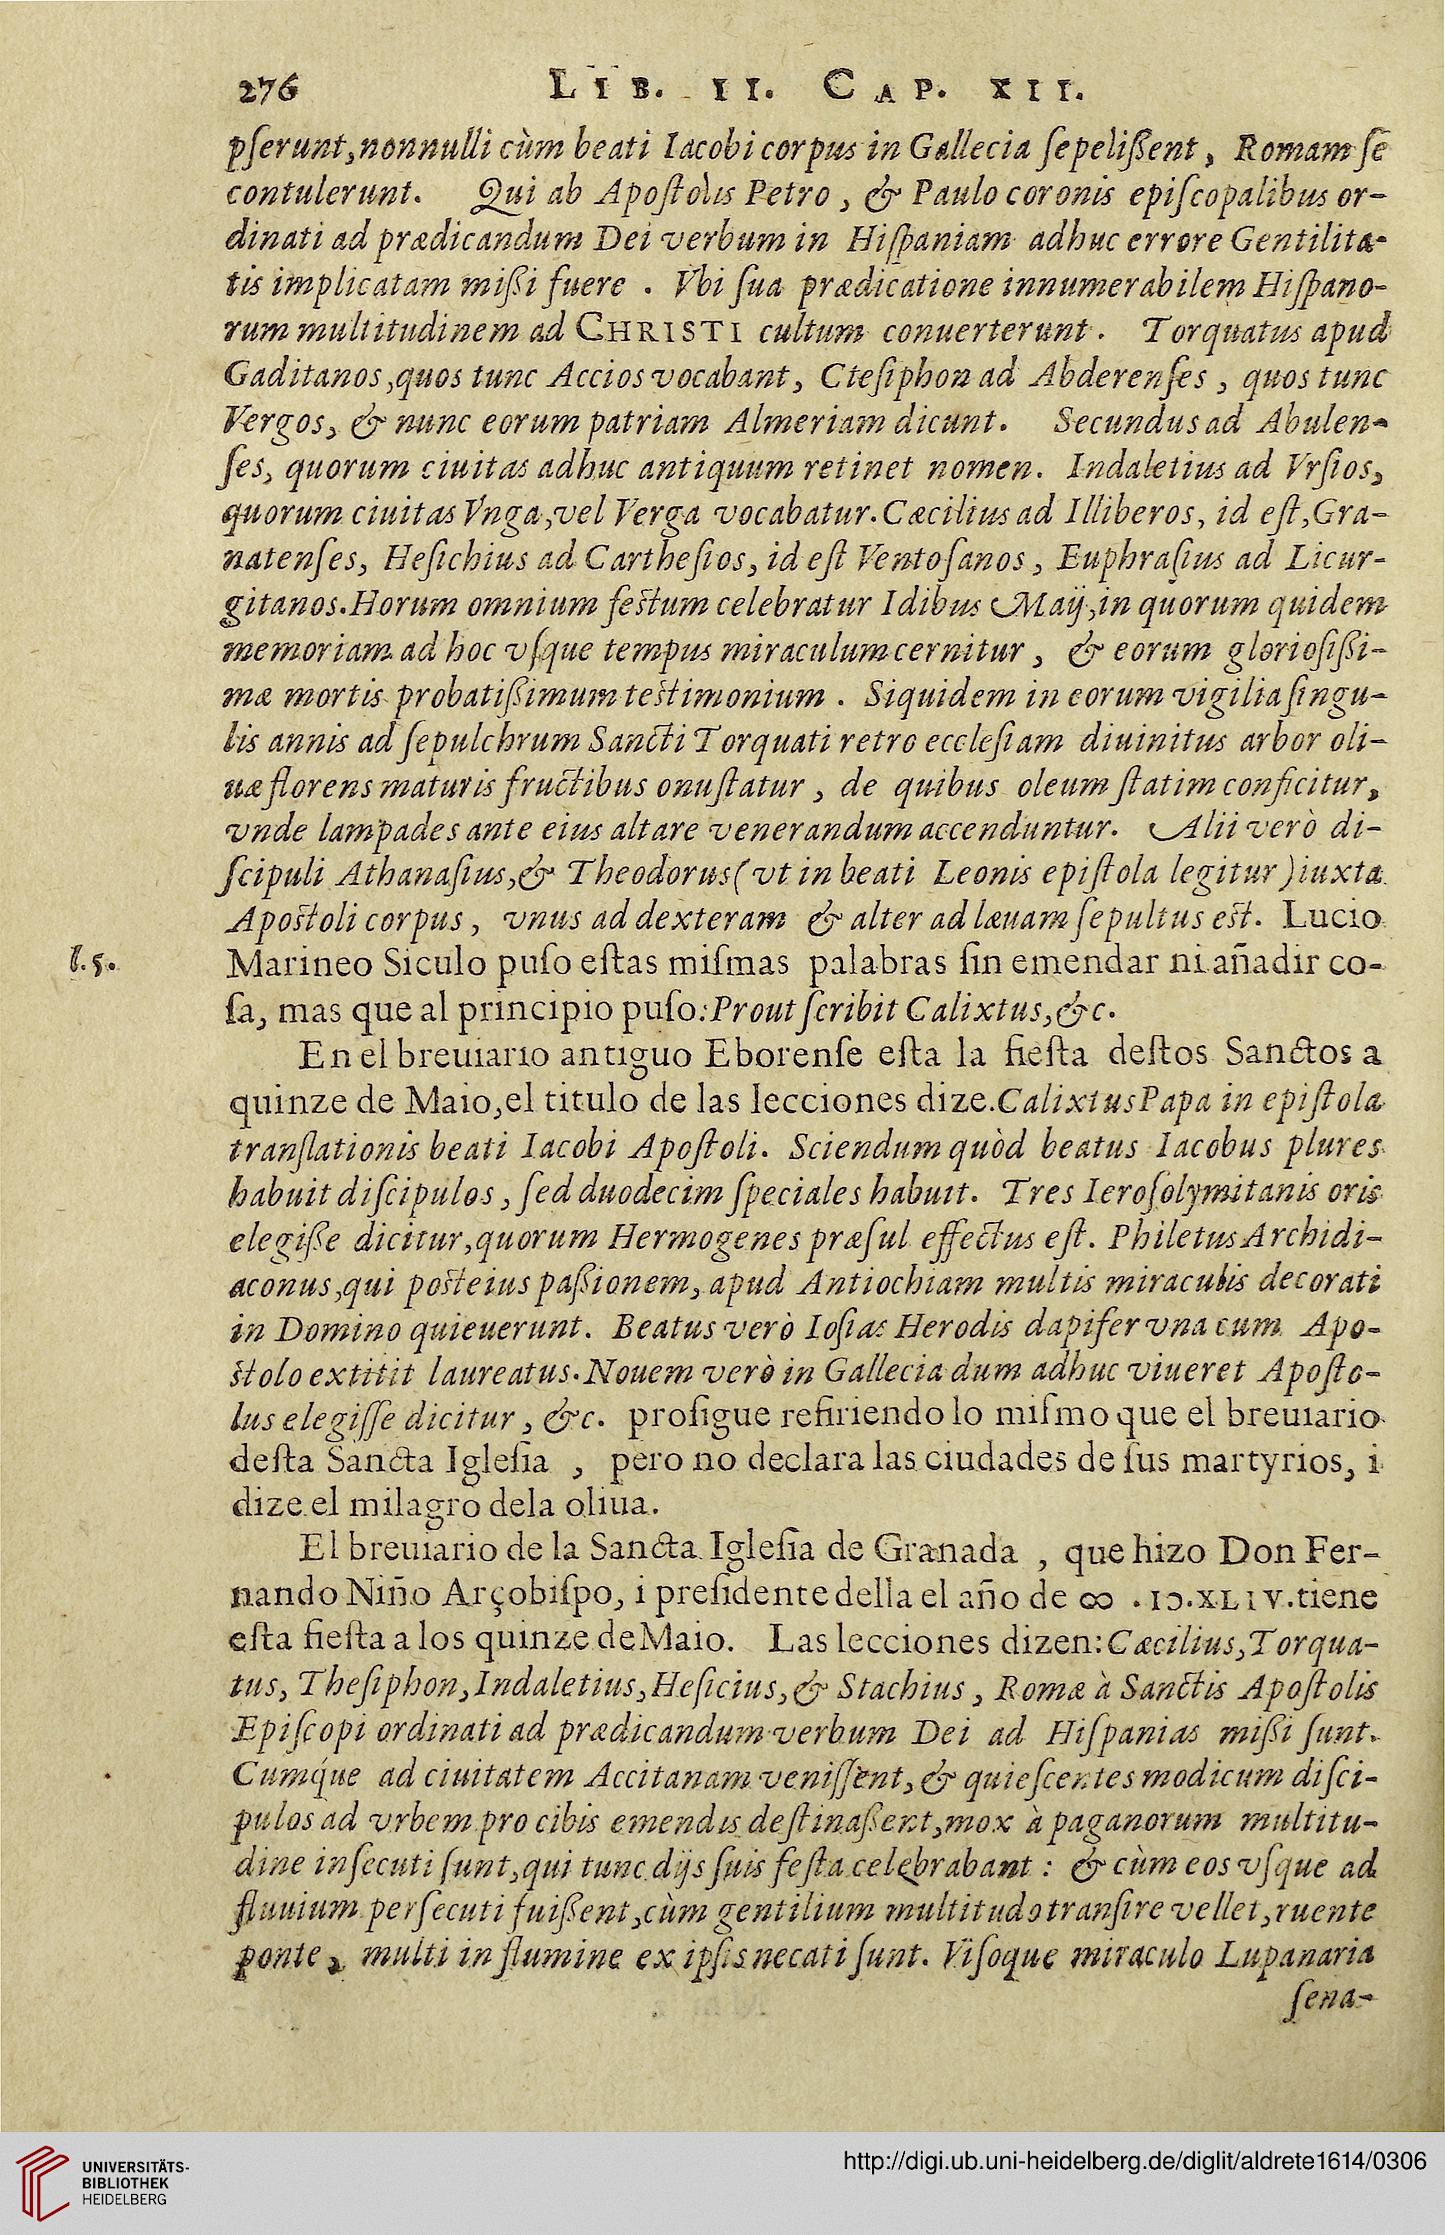 276 LIB. II. CAP. XII.
pſerunt,nonnulli cùm beati Iacobi corpus in Gallecia ſepelißent, Romam ſe
contulerunt. Qui ab Apoſtolis Petro, & Paulo coronis epiſcopalibus or-
dinati ad prædicandum Dei verbum in Hiſpaniam adhuc errore Gentilita-
tis implicatam mißi fuere. Vbi ſua prædicatione innumerabilem Hiſpano-
rum multitudinem ad CHRISTI cultum conuerterunt. Torquatus apud
Gaditanos,quos tunc Accios vocabant, Cteſiphon ad Abderenſes, quos tunc
Vergos, & nunc eorum patriam Almeriam dicunt. Secundus ad Abulen-
ſes, quorum ciuitas adhuc antiquum retinet nomen. Indaletius ad Vrſios,
quorum ciuitas Vnga,vel Verga vocabatur.Cæcilius ad Illiberos, id eſt,Gra-
natenſes, Heſichius ad Cartheſios, id eſt Ventoſanos, Euphraſius ad Licur-
gitanos.Horum omnium feſtum celebratur Idibus Maij,in quorum quidem
memoriam ad hoc vſque tempus miraculum cernitur, & eorum glorioſißi-
mæ mortis probatißimum teſtimonium. Siquidem in eorum vigilia ſingu-
lis annis ad ſepulchrum Sancti Torquati retro eccleſiam diuinitus arbor oli-
uæ florens maturis fructibus onuſtatur, de quibus oleum ſtatim conficitur,
vnde lampades ante eius altare venerandum accenduntur. Alii verò di-
ſcipuli Athanaſius,& Theodorus(vt in beati Leonis epiſtola legitur)iuxta
Apoſtoli corpus, vnus ad dexteram & alter ad læuam ſepultus eſt. Lucio
l.5. Marineo Siculo puſo eſtas miſmas palabras ſin emendar ni añadir co-
ſa, mas que al principio puſo:Prout ſcribit Calixtus,&c.
En el breuiario antiguo Eborenſe eſta la fieſta deſtos Sanctos a
quinze de Maio,el titulo de las lecciones dize.Calixtus Papa in epiſtola
tranſlationis beati Iacobi Apoſtoli. Sciendum quòd beatus Iacobus plures
habuit diſcipulos, ſed duodecim ſpeciales habuit. Tres Ieroſolymitanis oris
elegiße dicitur,quorum Hermogenes præſul effectus eſt. Philetus Archidi-
aconus,qui poſt eius paßionem, apud Antiochiam multis miraculis decorati
in Domino quieuerunt. Beatus verò Ioſias Herodis dapifer vna cum Apo-
ſtolo extitit laureatus.Nouem verò in Gallecia dum adhuc viueret Apoſto-
lus elegiſſe dicitur, &c. proſigue refiriendo lo miſmo que el breuiario
deſta Sancta Igleſia , pero no declara las ciudades de ſus martyrios, i
dize el milagro dela oliua.
El breuiario de la Sancta Igleſia de Granada , que hizo Don Fer-
nando Niño Arçobiſpo, i preſidente della el año de ∞ .IↃ.XLIV.tiene
eſta fieſta a los quinze de Maio. Las lecciones dizen:Cæcilius,Torqua-
tus, Theſiphon,Indaletius,Heſicius,& Stachius, Romæ à Sanctis Apoſtolis
Epiſcopi ordinati ad prædicandum verbum Dei ad Hiſpanias mißi ſunt.
Cumq́ue ad ciuitatem Accitanam veniſſent,& quieſcentes modicum diſci-
pulos ad vrbem pro cibis emendis deſtinaßent,mox à paganorum multitu-
dine inſecuti ſunt,qui tunc dijs ſuis feſta celebrabant: & cùm eos vſque ad
fluuium perſecuti fuißent,cùm gentilium multitudo tranſire vellet,ruente
ponte, multi in flumine ex ipſis necati ſunt. Viſoque miraculo Lupanaria
ſena-
UNIVERSITÄTS-
BIBLIOTHEK
HEIDELBERG
http://digi.ub.uni-heidelberg.de/diglit/aldrete1614/0306